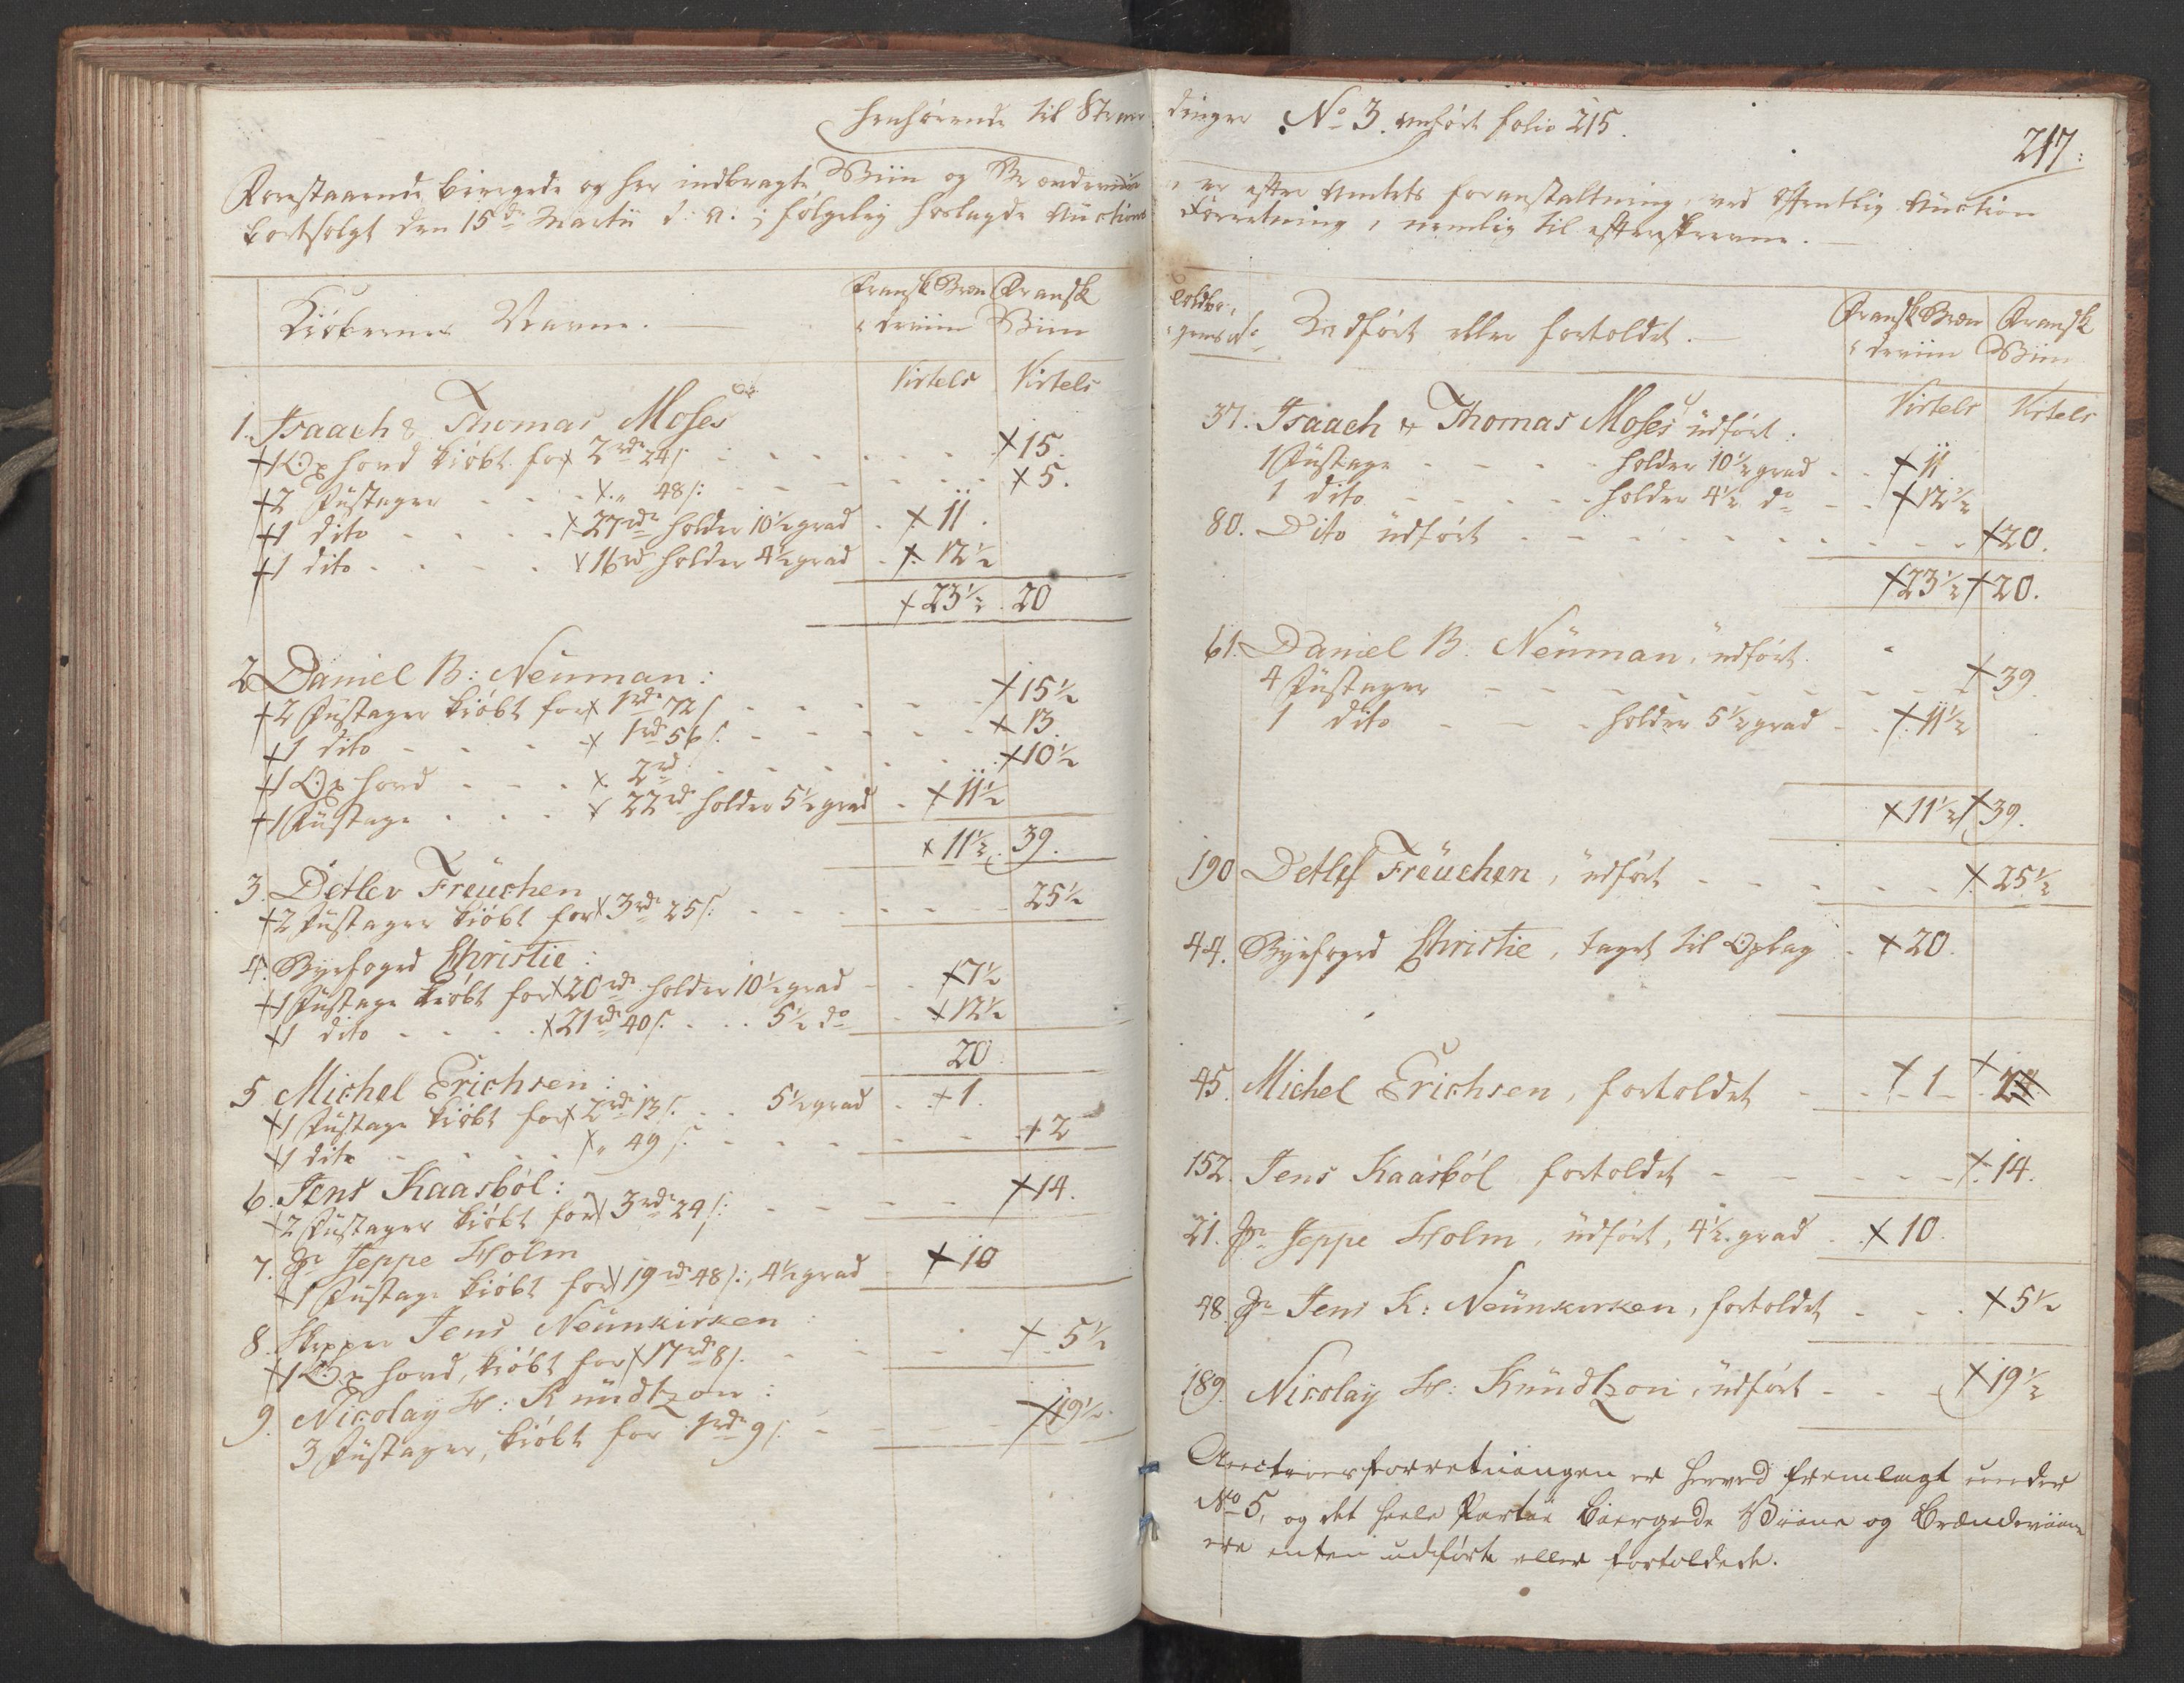 henhørende til Stran
Forestaaende biergede og her indbragte Viin og Brændeviin
bortsolgt den 15de Martii d: A: i følgelig hoslagde Auctions
Kiøbernes Navne.
Fransk Bræn
deviin
Fransk
Viin
Virtels
Virtels
1. Isaach & Thomas Moses
1 Oxhoved kiøbt for 2rdr 24s: 15.
2 Fustager „ 48s: 5.
1 dito 27rdr holder 10½ grad 11.
1 dito 16rdr holder 4½ grad 12½
23½ 20
2 Daniel B: Neuman:
2 Fustager kiøbt for 1rdr 72s 15½
1 dito 1rdr 56s: 13.
1 Oxhoved 2rd 10½
1 Fustage 22rdr holder 5½ grad 11½
11½ 39.
3. Detlev Freuchen
2 Fustager kiøbt for 3rdr 25s: 25½
4. Byefoged Christie:
1 Fustage kiøbt for 20rdr holder 10½ grad 7½
1 dito 21rdr 40s. 5½ do 12½
20
5. Michel Erichsen:
1 Fustage kiøbt for 2rdr 13s: 5½ grad 1.
1 dito „ 49s: 2
6. Jens Kaasbøl:
2 Fustager kiøbt for 3rdr 24s: 14.
7. Hr Jeppe Holm
1 Fustage kiøbt for 19rdr 48s:, 4½ grad 10
8. Skipper Jens Neunkirken:
1 Oxhoved, kiøbt for 17rdr 8s. 5½
9. Nicolay H: Knudtzon:
3 Fustager, kiøbt for 1rdr 9s: 19½.
dinger No 3. anført folio 215.
217:
er efter Amtets foranstaltning, ved offentlig Auction
Forretning, nemlig til efterskrevne.
Toldbo,
gens No
Udført eller fortoldet.
Fransk Bræn
deviin
Fransk
Viin
Virtels
Virtels
37. Isaach & Thomas Moses udført:
1 Fustage holder 10½ grad 11
1 dito holder 4½ do 12½
80. Dito udført 20.
23½ 20.
61. Daniel B. Neuman, udført.
4 Fustager 39
1 dito holder 5½ grad 11½
11½ 39.
190 Detlef Freuchen, udført 25½
44. Byefoged Christie, taget til Oplag 20.
45. Michel Erichsen, fortoldet 1
152. Jens Kaasbøl fortoldet 14.
21. Hr Jeppe Holm, udført, 4½ grad 10.
48. Hr Jens K: Neunkirken, fortoldet 5½
189. Nicolay H: Knudtzon, udført 19½
Auctionsforretningen er herved fremlagt under
No 5, og det heele Partie biergede Viine og Brændeviine
ere enten udførte eller fortoldede.